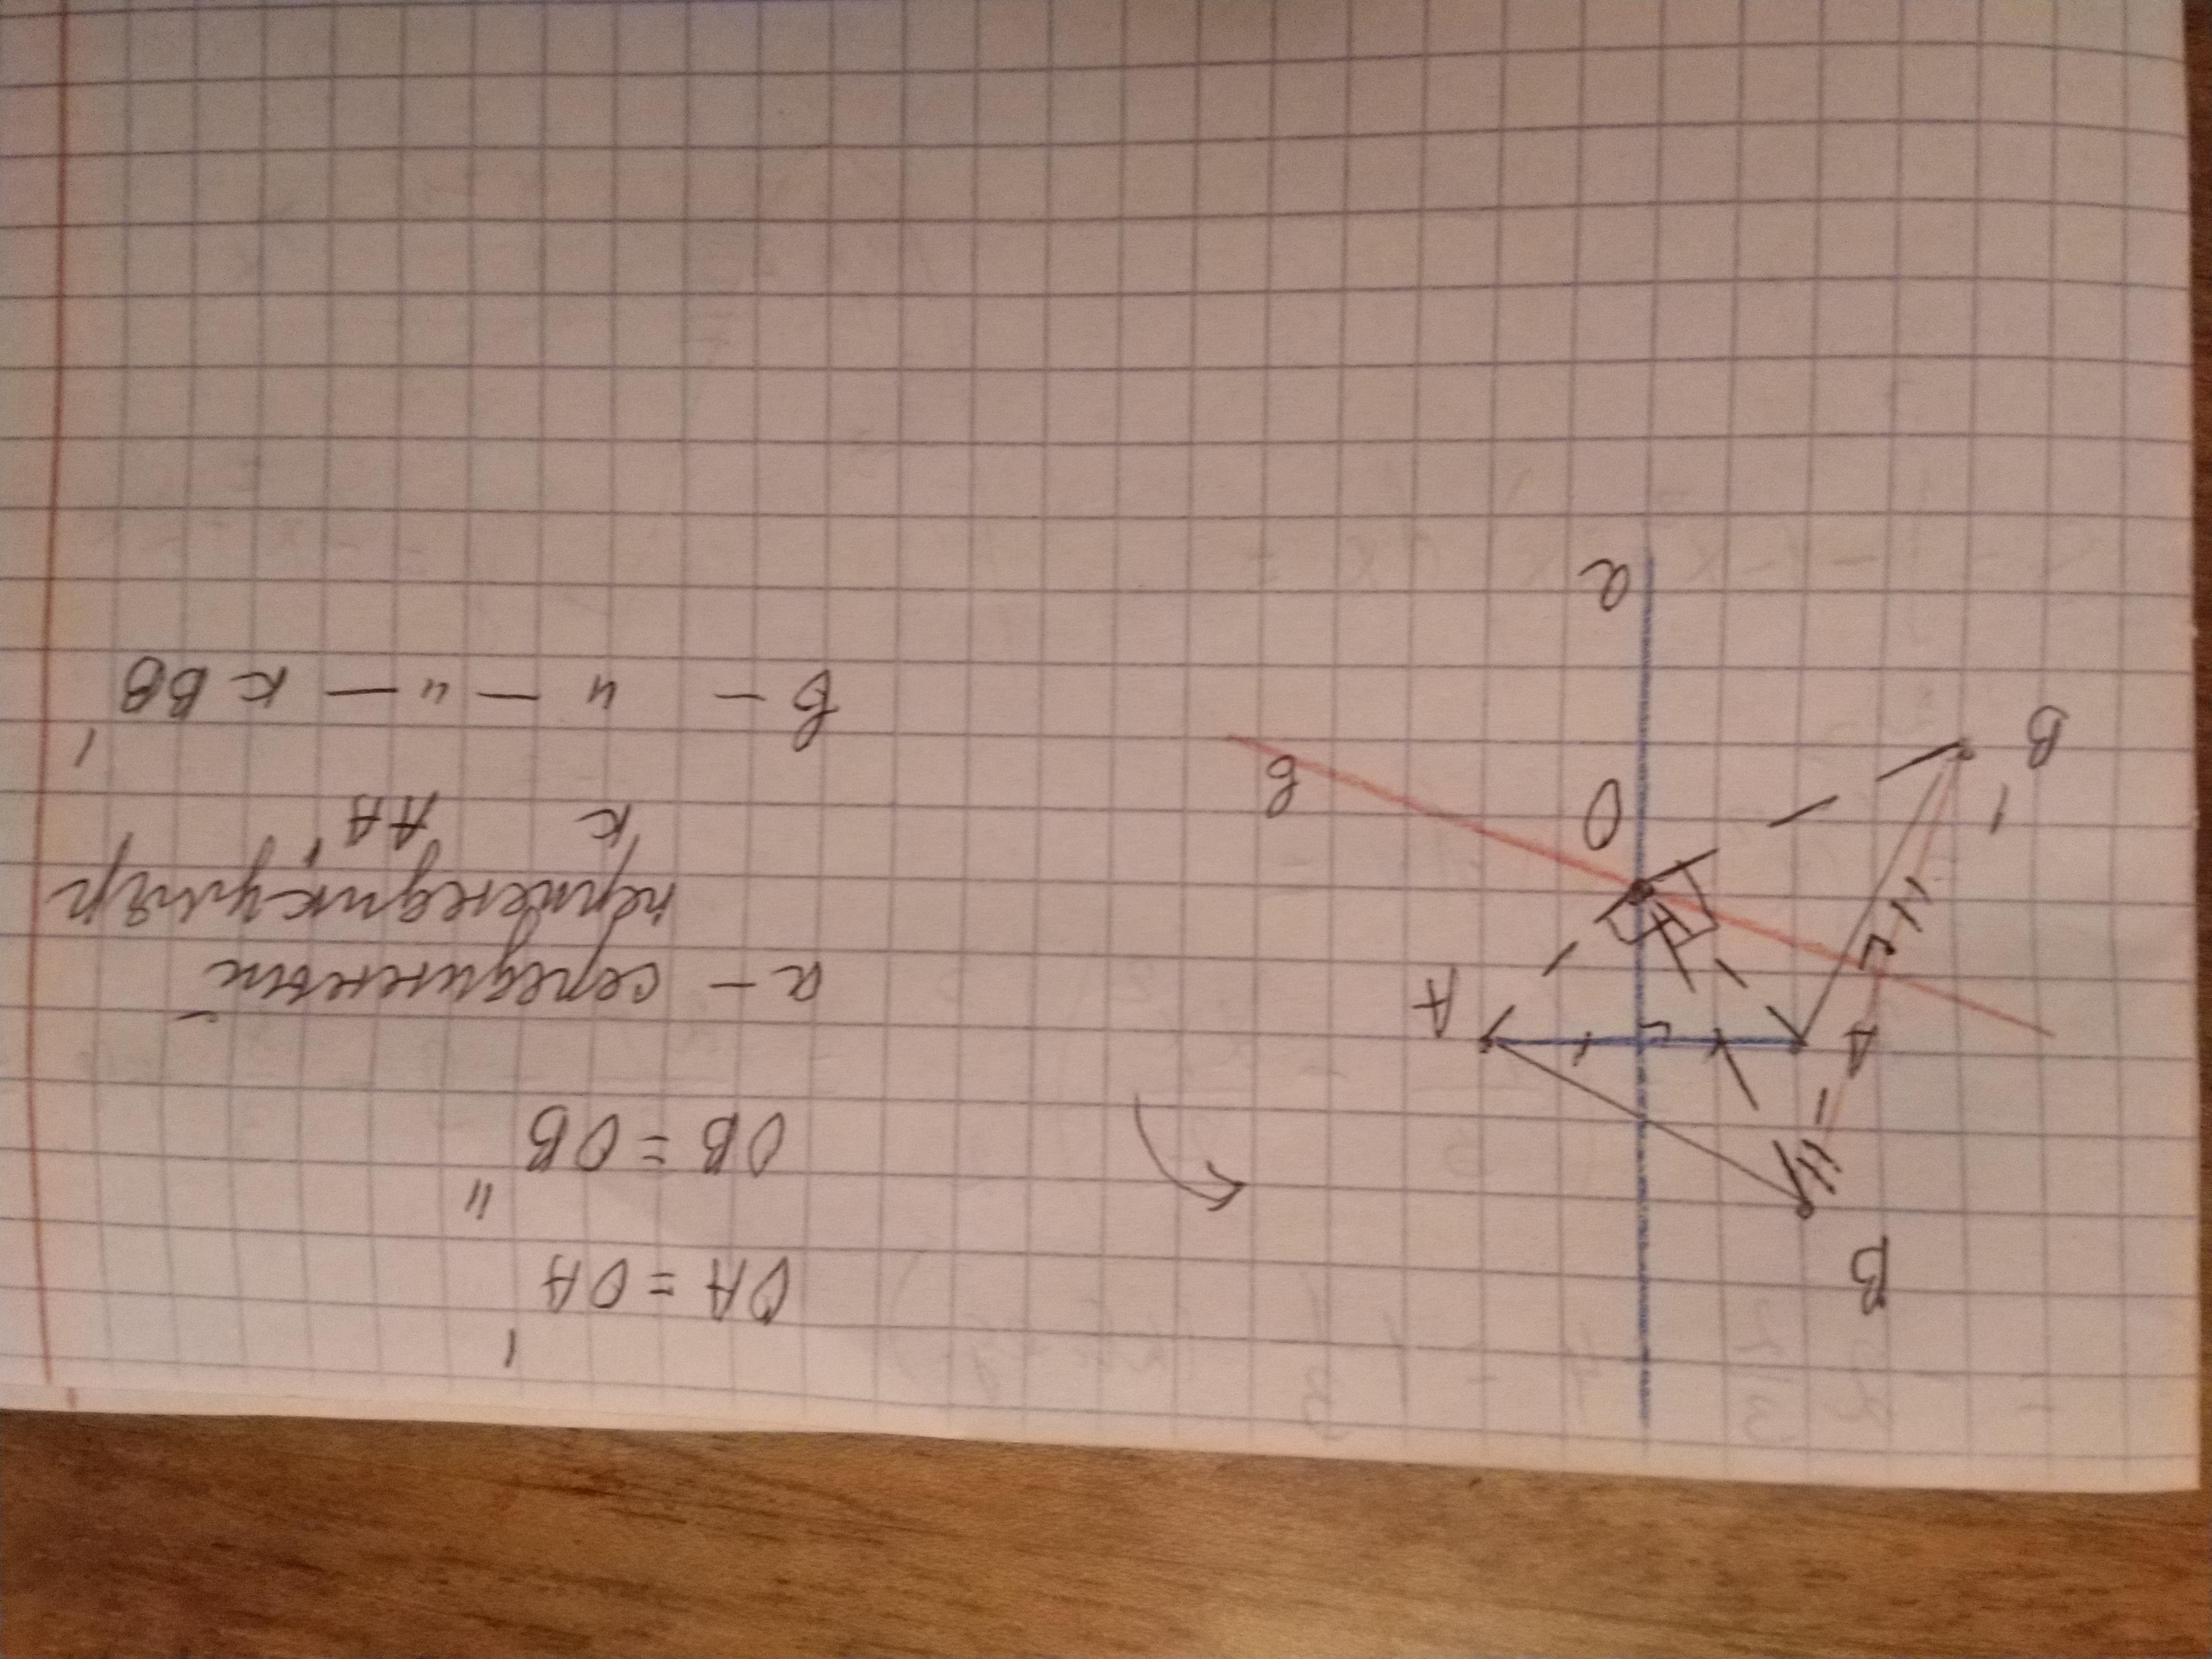 B
A
A'
O
B'
в
а
OA = OA'
OB = OB"
а - серединный
перпендикуляр
к AA'
в - " - " - к BB'